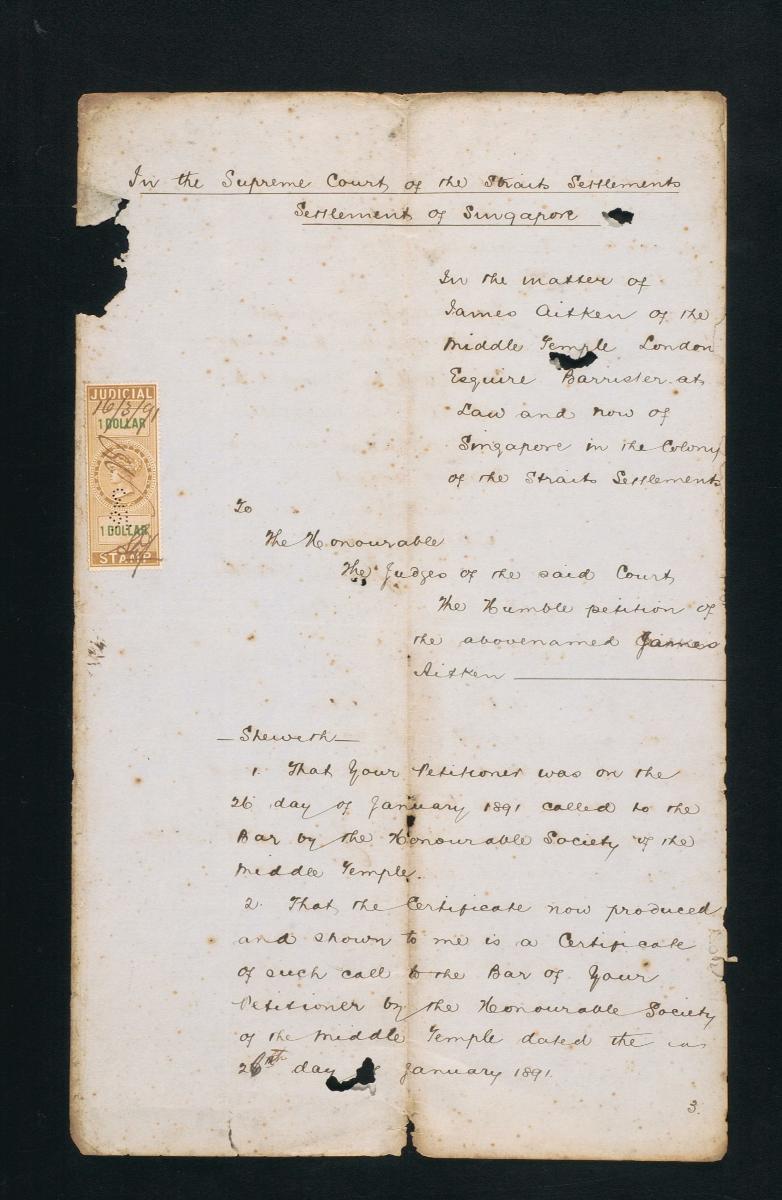 In the Supreme Court of the Straits Settlements
Settlement of Singapore
In the matter of
James Aitken of the
Middle Temple London
Esquire Barrister at
Law and now of
Singapore in the Colony
of the Straits Settlements
JUDICIAL
16/3/91
1 DOLLAR
1 DOLLAR
STAMP
To
The Honourable
The Judges of the said Court
The Humble petition of
the abovenamed James
Aitken
— Sheweth —
1. That Your Petitioner was on the
26 day of January 1891 called to the
Bar by the Honourable Society of the
Middle Temple.
2. That the Certificate now produced
and shown to me is a Certificate
of such call to the Bar of Your
Petitioner by the Honourable Society
of the Middle Temple dated the
26th day of January 1891.
3.